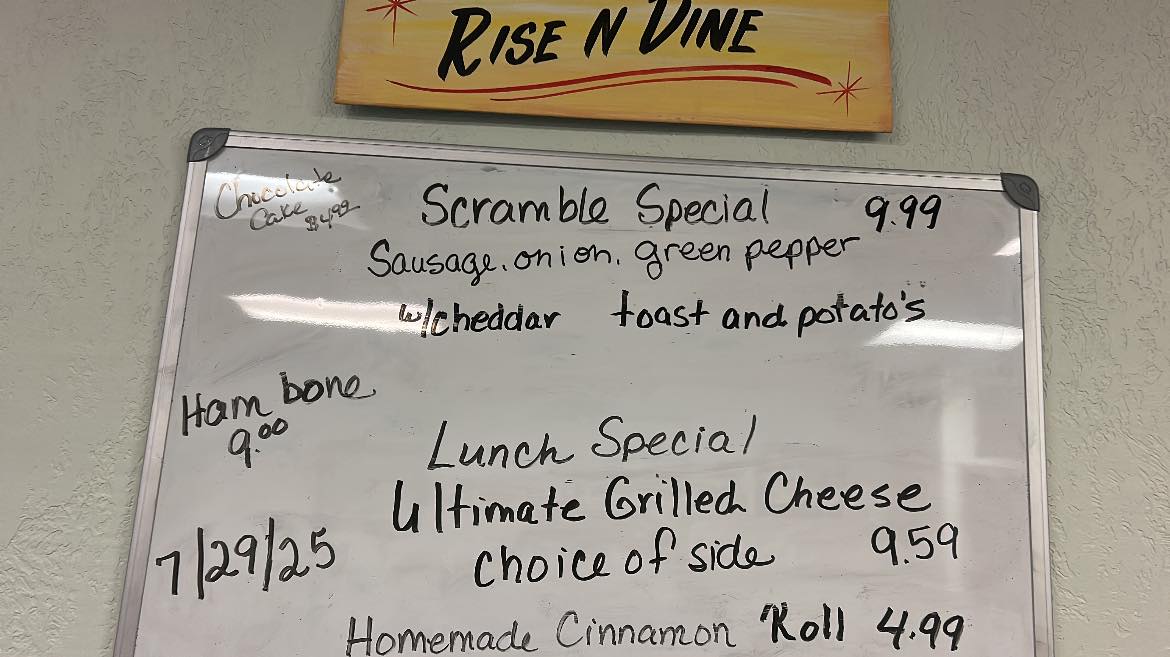 RISE N DINE
Chocolate
Cake $4.99
Scramble Special 9.99
Sausage, onion, green pepper
w/cheddar toast and potato's
Ham bone
9.00
Lunch Special
Ultimate Grilled Cheese
choice of side 9.59
7/29/25
Homemade Cinnamon Roll 4.99